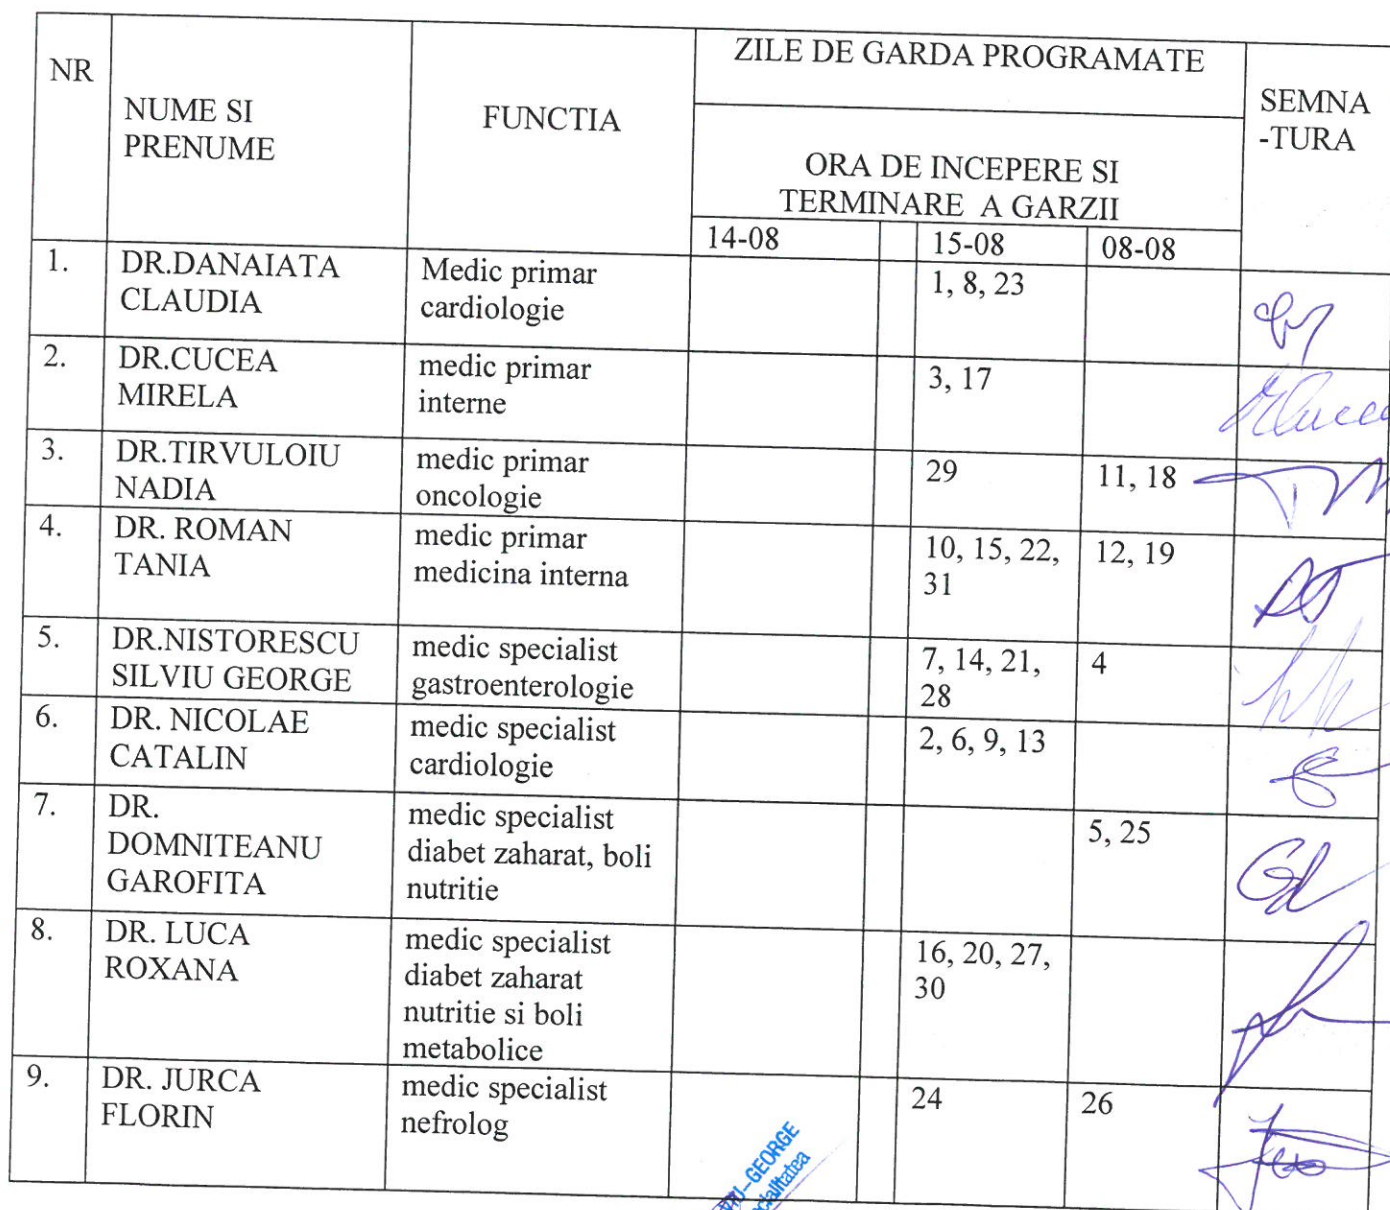 NR
NUME SI
PRENUME
FUNCTIA
ZILE DE GARDA PROGRAMATE
ORA DE INCEPERE SI
TERMINARE A GARZII
SEMNA
-TURA
14-08
15-08
08-08
1.
DR.DANAIATA
CLAUDIA
Medic primar
cardiologie
1, 8, 23
2.
DR.CUCEA
MIRELA
medic primar
interne
3, 17
3.
DR.TIRVULOIU
NADIA
medic primar
oncologie
29
11, 18
4.
DR. ROMAN
TANIA
medic primar
medicina interna
10, 15, 22,
31
12, 19
5.
DR.NISTORESCU
SILVIU GEORGE
medic specialist
gastroenterologie
7, 14, 21,
28
4
6.
DR. NICOLAE
CATALIN
medic specialist
cardiologie
2, 6, 9, 13
7.
DR.
DOMNITEANU
GAROFITA
medic specialist
diabet zaharat, boli
nutritie
5, 25
8.
DR. LUCA
ROXANA
medic specialist
diabet zaharat
nutritie si boli
metabolice
16, 20, 27,
30
9.
DR. JURCA
FLORIN
medic specialist
nefrolog
24
26
-GEORGE